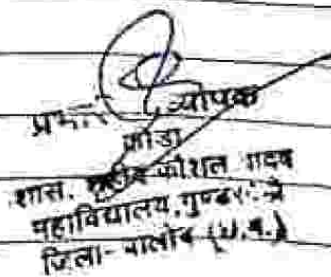 प्रभारी प्राध्यापक
क्रीडा
शास. शहीद कौशल यादव
महाविद्यालय, गुण्डरदेही
जिला- बालोद (छ.ग.)